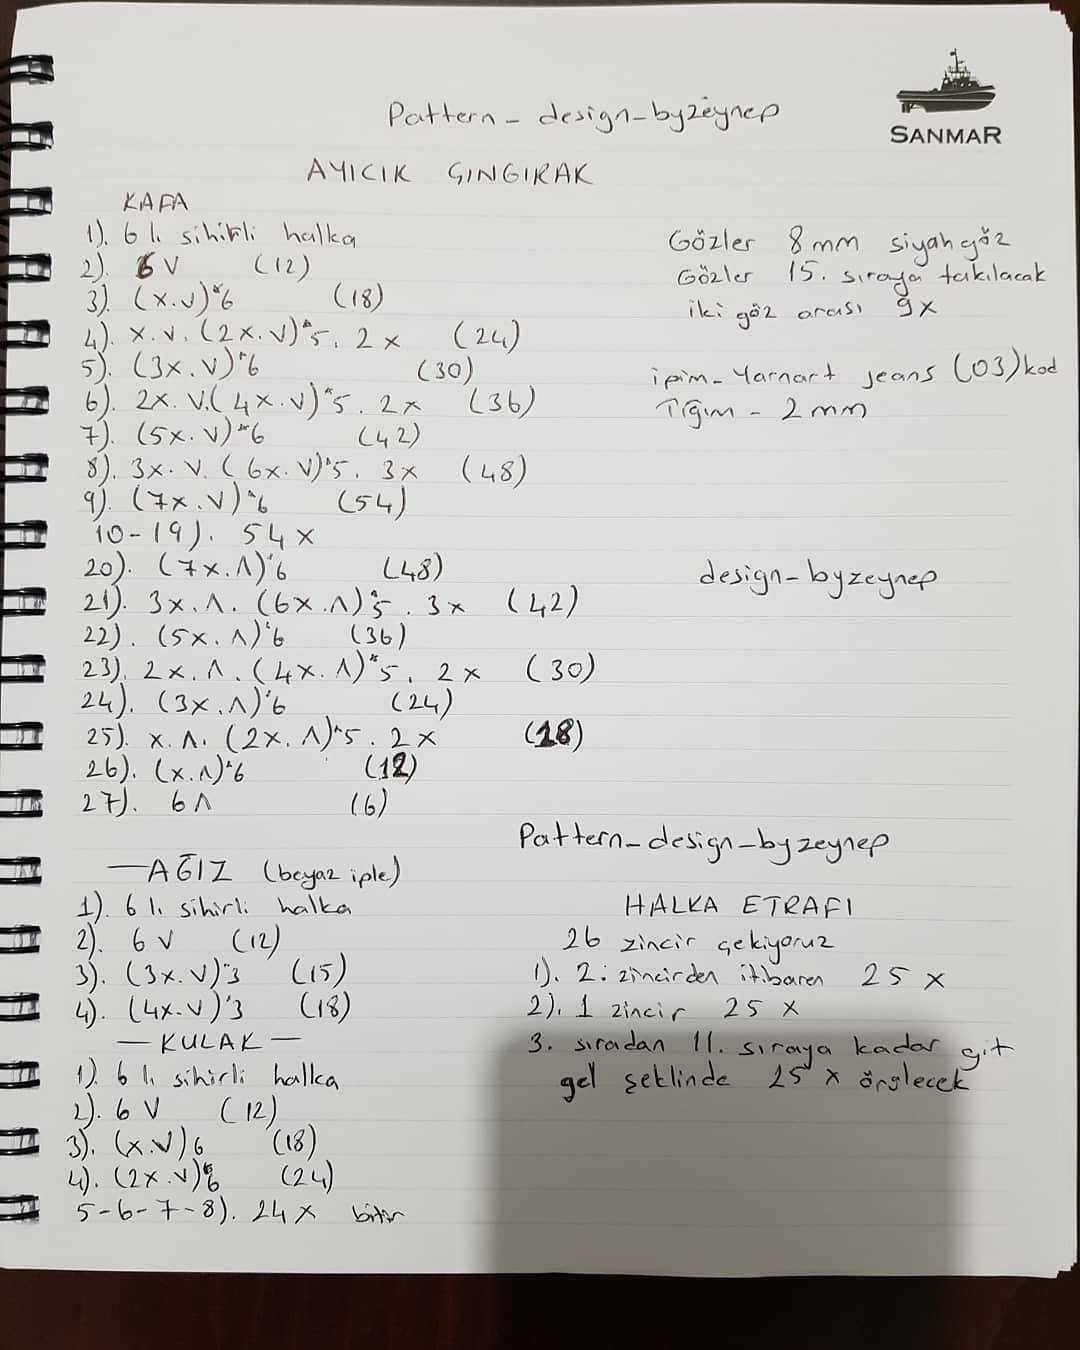 SANMAR
Pattern - design-byzeynep
AYICIK ÇINGIRAK
KAFA
1). 6 lı sihirli halka
2). 6 V (12)
3). (x.v)*6 (18)
4). x.v.(2x.v)*5. 2x (24)
5). (3x.v)*6 (30)
6). 2x.v.(4x.v)*5. 2x (36)
7). (5x.v)*6 (42)
8). 3x.v.(6x.v)*5. 3x (48)
9). (7x.v)*6 (54)
10-19). 54x
20). (7x.ʌ)*6 (48)
21). 3x.ʌ.(6x.ʌ)*5. 3x (42)
22). (5x.ʌ)*6 (36)
23). 2x.ʌ.(4x.ʌ)*5. 2x (30)
24). (3x.ʌ)*6 (24)
25). x.ʌ.(2x.ʌ)*5. 2x (18)
26). (x.ʌ)*6 (12)
27). 6ʌ (6)
Gözler 8mm siyah göz
Gözler 15. sıraya takılacak
iki göz arası 9x
ipim - Yarnart jeans (03) kod
Tığım - 2mm
design-byzeynep
Pattern-design-byzeynep
—AĞIZ (beyaz iple)
1). 6 lı sihirli halka
2). 6 V (12)
3). (3x.v)*3 (15)
4). (4x.v)*3 (18)
—KULAK—
1). 6 lı sihirli halka
2). 6 V (12)
3). (x.v)6 (18)
4). (2x.v)*6 (24)
5-6-7-8). 24x bitir
HALKA ETRAFI
26 zincir çekiyoruz
1). 2. zincirden itibaren 25 x
2). 1 zincir 25 x
3. sıradan 11. sıraya kadar git
gel şeklinde 25 x örülecek